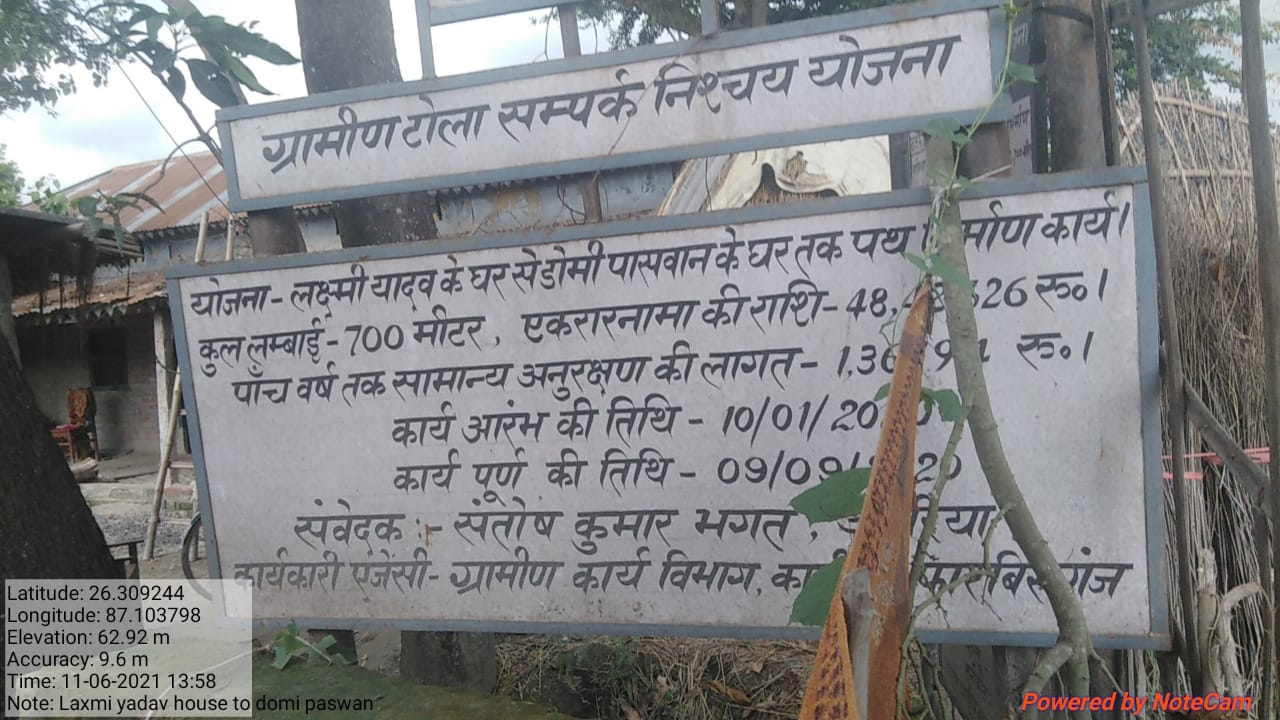 ग्रामीण टोला सम्पर्क निश्चय योजना
योजना - लक्ष्मी यादव के घर से डोमी पासवान के घर तक पथ कार्य।
कुल लम्बाई - 700 मीटर, एकरारनामा की राशि - रू०।
पाँच वर्ष तक सामान्य अनुरक्षण की लागत - रू०।
कार्य आरंभ की तिथि - 10/01/
कार्य पूर्ण की तिथि - 09/09/
संवेदक :- संतोष कुमार भगत,
कार्यकारी एजेंसी - ग्रामीण कार्य विभाग,
Latitude: 26.309244
Longitude: 87.103798
Elevation: 62.92 m
Accuracy: 9.6 m
Time: 11-06-2021 13:58
Note: Laxmi yadav house to domi paswan
Powered by NoteCam